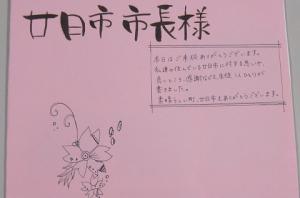 廿日市市長様
本日はご来校ありがとうございます。
私達の住んでいる廿日市に対する思いや、
良いところ、感謝などを生徒一人ひとりが
書きました。
素晴らしい町、廿日市をありがとうございます。